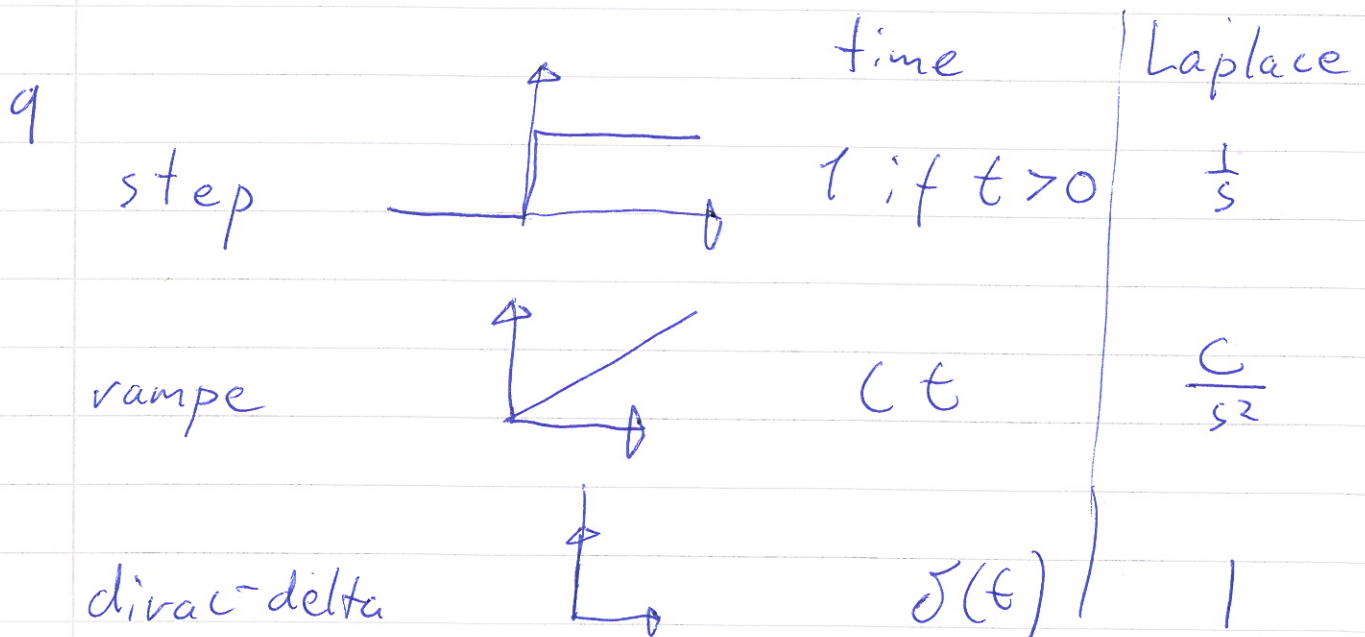 time Laplace
9 step 1 if t>0 1/s
rampe C t C/s²
dirac-delta δ(t) 1